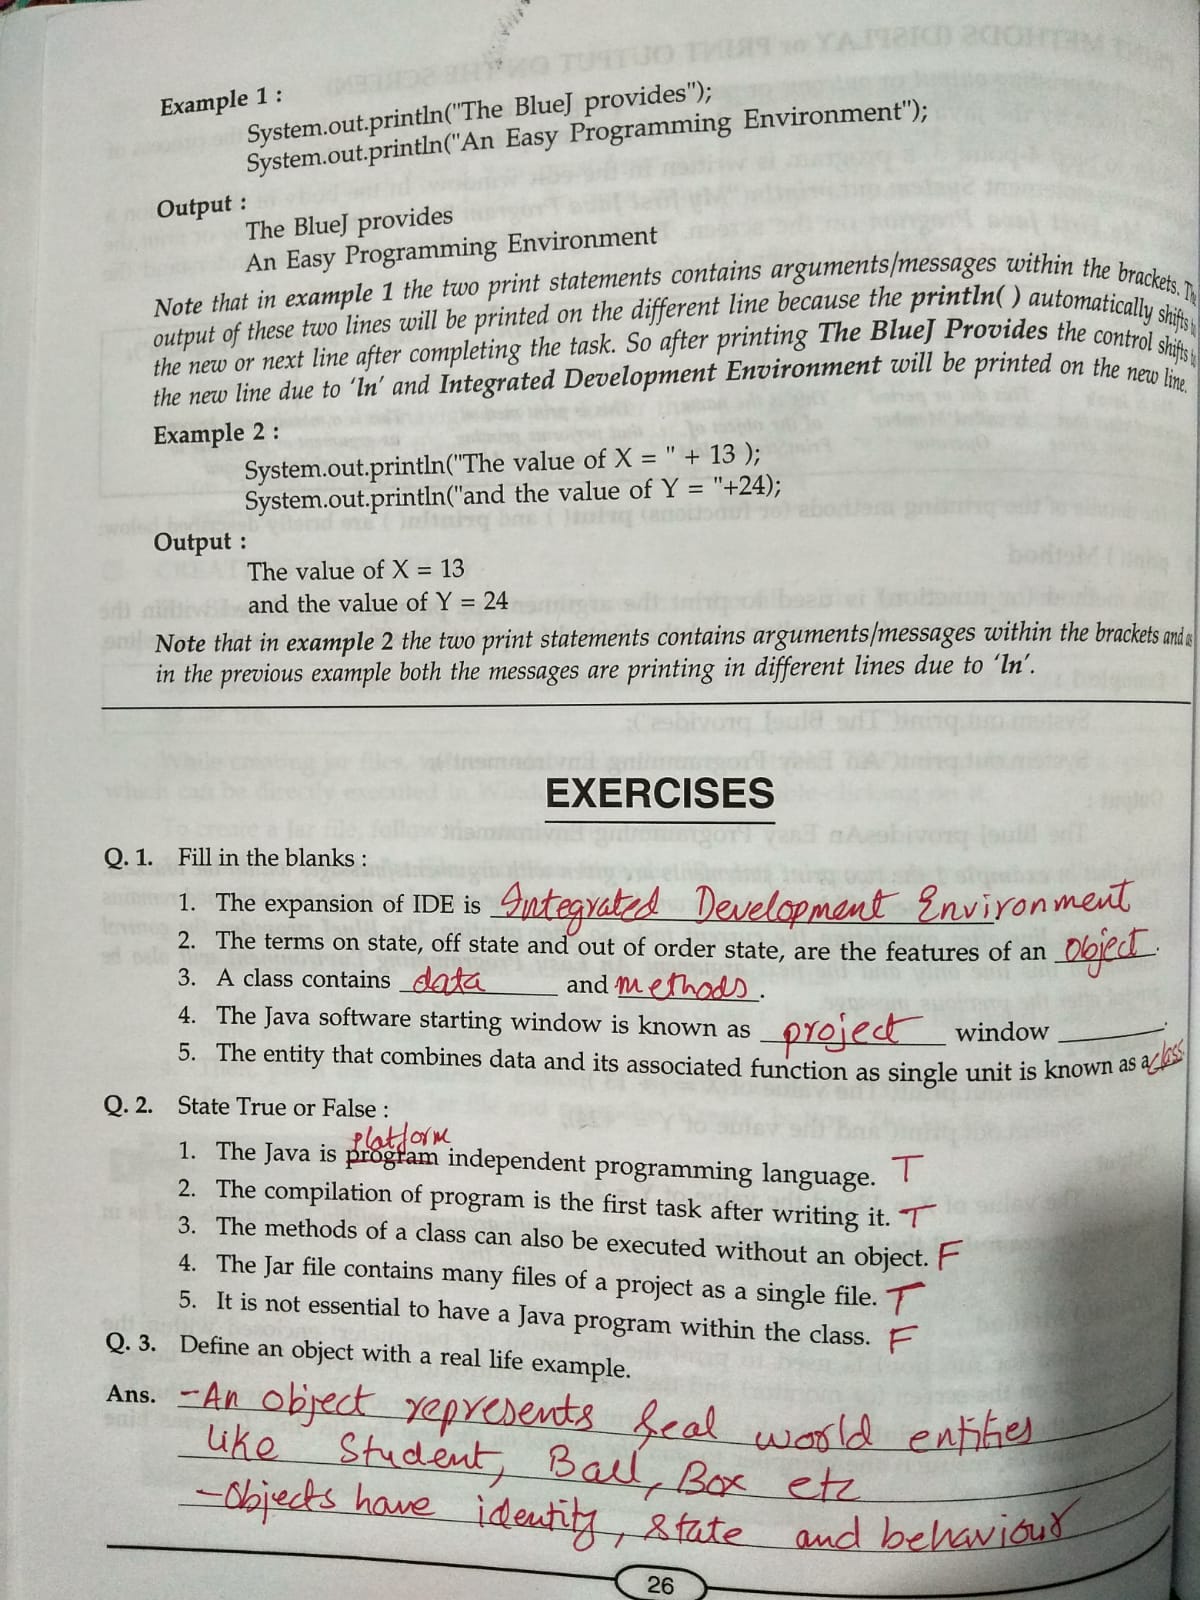 Example 1 :
System.out.println("The BlueJ provides");
System.out.println("An Easy Programming Environment");
Output :
The BlueJ provides
An Easy Programming Environment
Note that in example 1 the two print statements contains arguments/messages within the brackets.
output of these two lines will be printed on the different line because the println( ) automatically shifts
the new or next line after completing the task. So after printing The BlueJ Provides the control shifts
the new line due to 'ln' and Integrated Development Environment will be printed on the new line.
Example 2 :
System.out.println("The value of X = " + 13 );
System.out.println("and the value of Y = "+24);
Output :
The value of X = 13
and the value of Y = 24
Note that in example 2 the two print statements contains arguments/messages within the brackets and as
in the previous example both the messages are printing in different lines due to 'ln'.
EXERCISES
Q. 1. Fill in the blanks :
1. The expansion of IDE is Integrated Development Environment
2. The terms on state, off state and out of order state, are the features of an object.
3. A class contains data and methods.
4. The Java software starting window is known as project window ________.
5. The entity that combines data and its associated function as single unit is known as a class.
Q. 2. State True or False :
platform
1. The Java is program independent programming language. T
2. The compilation of program is the first task after writing it. T
3. The methods of a class can also be executed without an object. F
4. The Jar file contains many files of a project as a single file. T
5. It is not essential to have a Java program within the class. F
Q. 3. Define an object with a real life example.
Ans. -An object represents real world entities
like Student, Ball, Box etc
-Objects have identity, state and behaviour
26